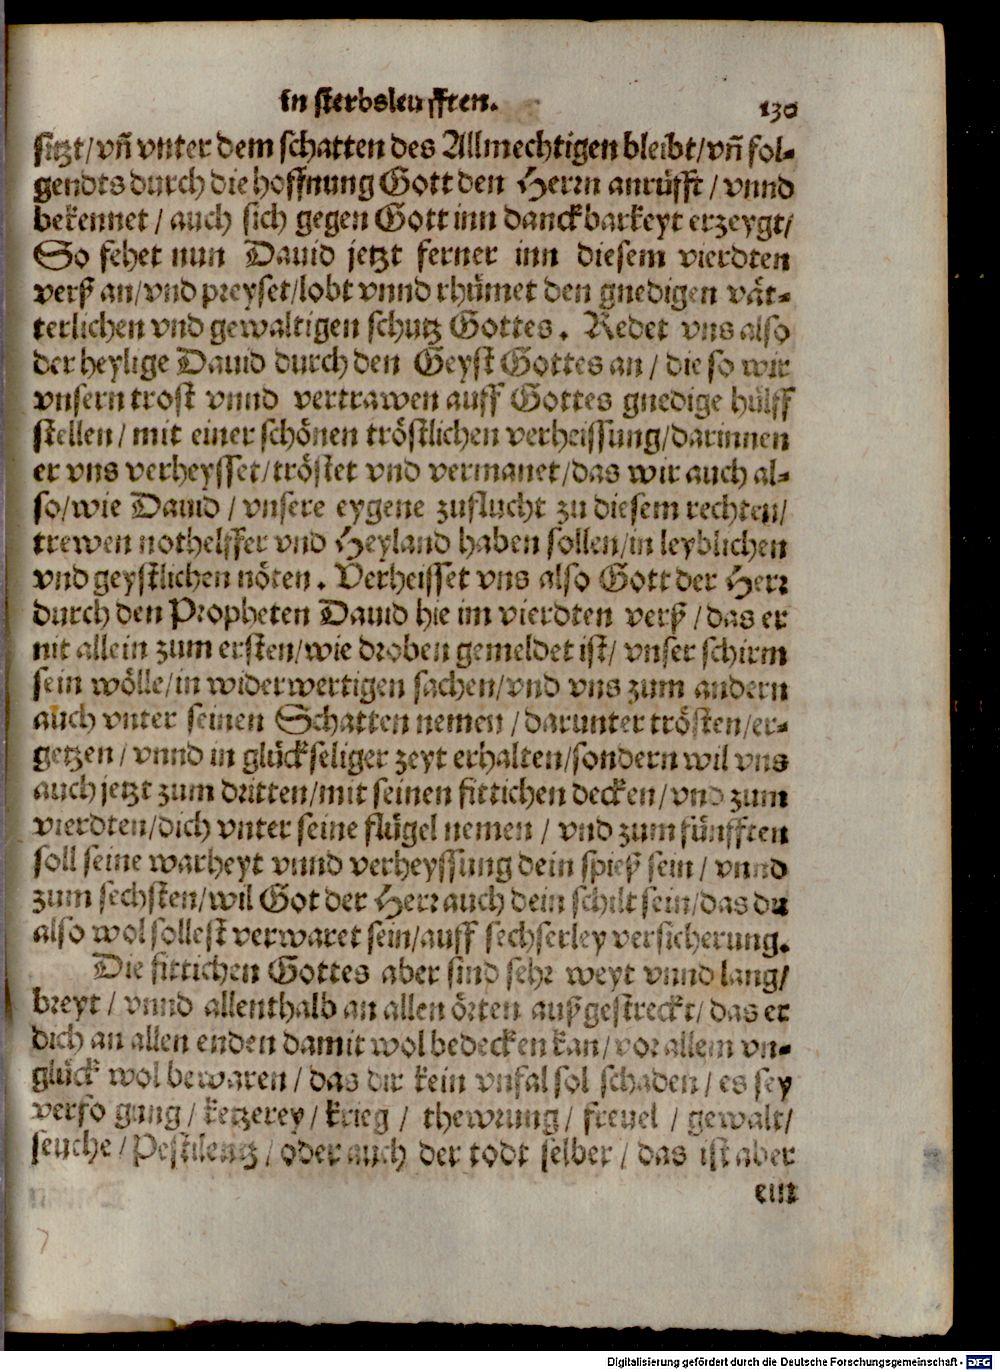 in sterbsleufften. 130
sitzt/vñ vnter dem schatten des Allmechtigen bleibt/vñ fol-
gendts durch die hoffnung Gott den Herrn anrüfft/vnnd
bekennet/auch sich gegen Gott inn danckbarkeyt erzeygt/
So fehet nun Dauid jetzt ferner inn diesem vierdten
verß an/vnd preyset/lobt vnnd rhümet den gnedigen vät-
terlichen vnd gewaltigen schutz Gottes. Redet vns also
der heylige Dauid durch den Geyst Gottes an/die so wir
vnsern trost vnnd vertrawen auff Gottes gnedige hülff
stellen/mit einer schönen tröstlichen verheissung/darinnen
er vns verheysset/tröstet vnd vermanet/das wir auch al-
so/wie Dauid/vnsere eygene zuflucht zu diesem rechten/
trewen nothelffer vnd Heyland haben sollen/in leyblichen
vnd geystlichen nöten. Verheisset vns also Gott der Herr
durch den Propheten Dauid hie im vierdten verß/das er
nit allein zum ersten/wie droben gemeldet ist/vnser schirm
sein wölle/in widerwertigen sachen/vnd vns zum andern
auch vnter seinen Schatten nemen/darunter trösten/er-
getzen/vnnd in glückseliger zeyt erhalten/sondern wil vns
auch jetzt zum dritten/mit seinen fittichen decken/vnd zum
vierdten/dich vnter seine flügel nemen/vnd zum fünfften
soll seine warheyt vnnd verheyssung dein spieß sein/vnnd
zum sechsten/wil Got der Herr auch dein schilt sein/das du
also wol sollest verwaret sein/auff sechserley versicherung.
Die fittichen Gottes aber sind sehr weyt vnnd lang/
breyt/vnnd allenthalb an allen örten außgestreckt/das er
dich an allen enden damit wol bedecken kan/vor allem vn-
glück wol bewaren/das dir kein vnfal sol schaden/es sey
verfo gung/ketzerey/krieg/thewrung/freuel/gewalt/
seuche/Pestilentz/oder auch der todt selber/das ist aber
ein
Digitalisierung gefördert durch die Deutsche Forschungsgemeinschaft - DFG